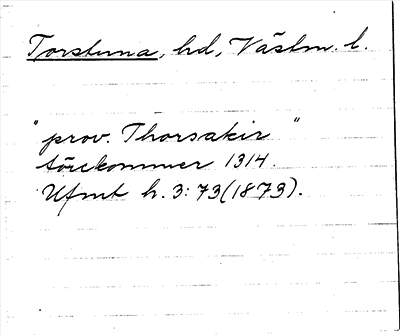 Torstuna, hd, Västm. l.
"prov. Thorsakir"
förekommer 1314.
Ufmt h. 3: 73 (1873).